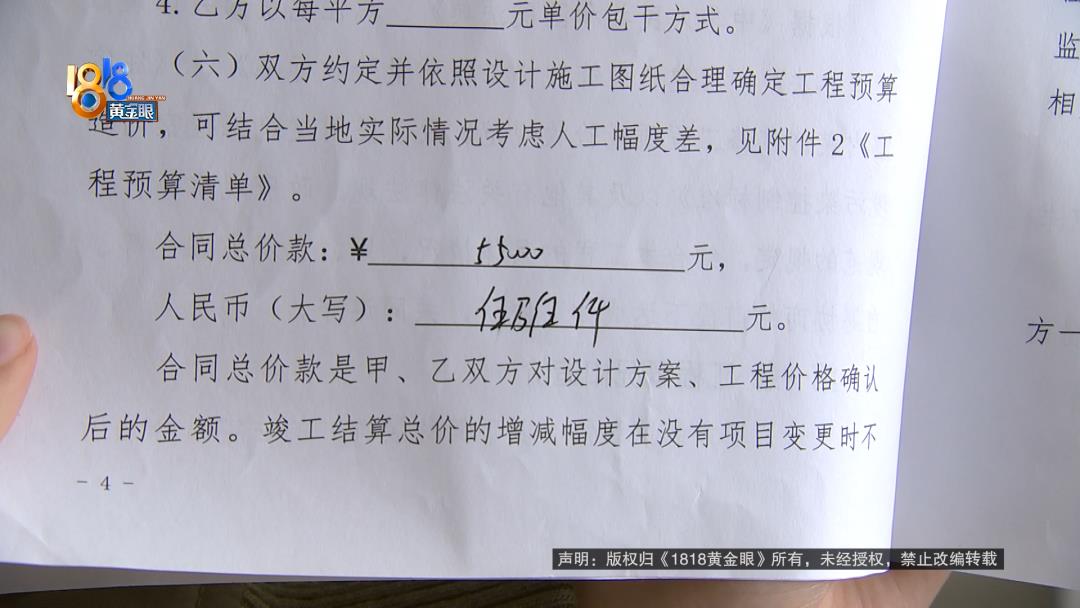 4. 乙方以每平方______元单价包干方式。
（六）双方约定并依照设计施工图纸合理确定工程预算
造价，可结合当地实际情况考虑人工幅度差，见附件2《工
程预算清单》。
合同总价款：¥ 55000 元，
人民币（大写）： 伍万伍仟 元。
合同总价款是甲、乙双方对设计方案、工程价格确认
后的金额。竣工结算总价的增减幅度在没有项目变更时不
- 4 -
监
相
方一
1818
HUANG JIN YAN
黄金眼
声明：版权归《1818黄金眼》所有，未经授权，禁止改编转载